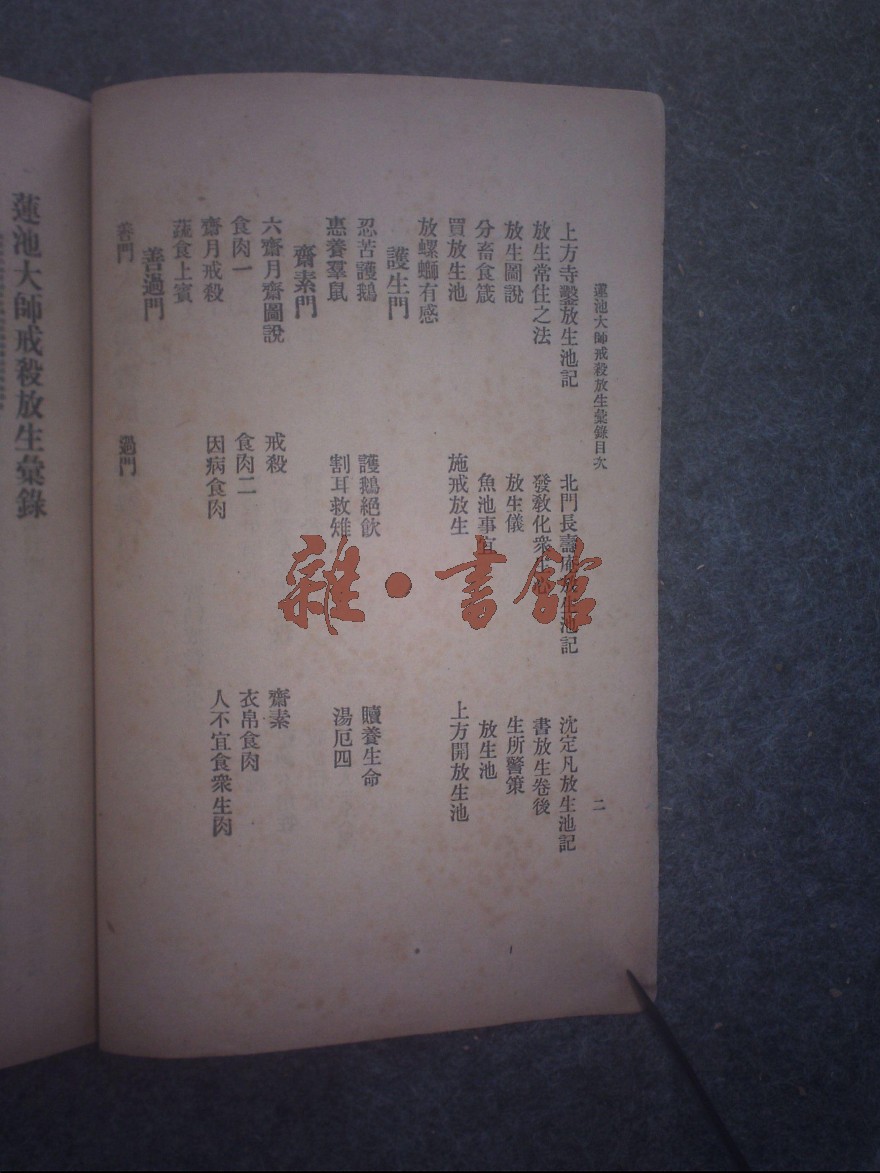 蓮池大師戒殺放生彙錄目次 二
上方寺鑿放生池記 北門長壽庵放生池記 沈定凡放生池記
放生常住之法 發教化衆生心 書放生卷後
放生圖說 放生儀 生所警策
分畜食箴 魚池事宜 放生池
買放生池 施戒放生 上方開放生池
放螺螄有感
護生門
忍苦護鵝 護鵝絕飲 贖養生命
惠養羣鼠 割耳救雉 湯厄四
齋素門
六齋月齋圖說 戒殺 齋素
食肉一 食肉二 衣帛食肉
齋月戒殺 因病食肉 人不宜食衆生肉
蔬食上賓
善過門
善門 過門
蓮池大師戒殺放生彙錄
雜·書館